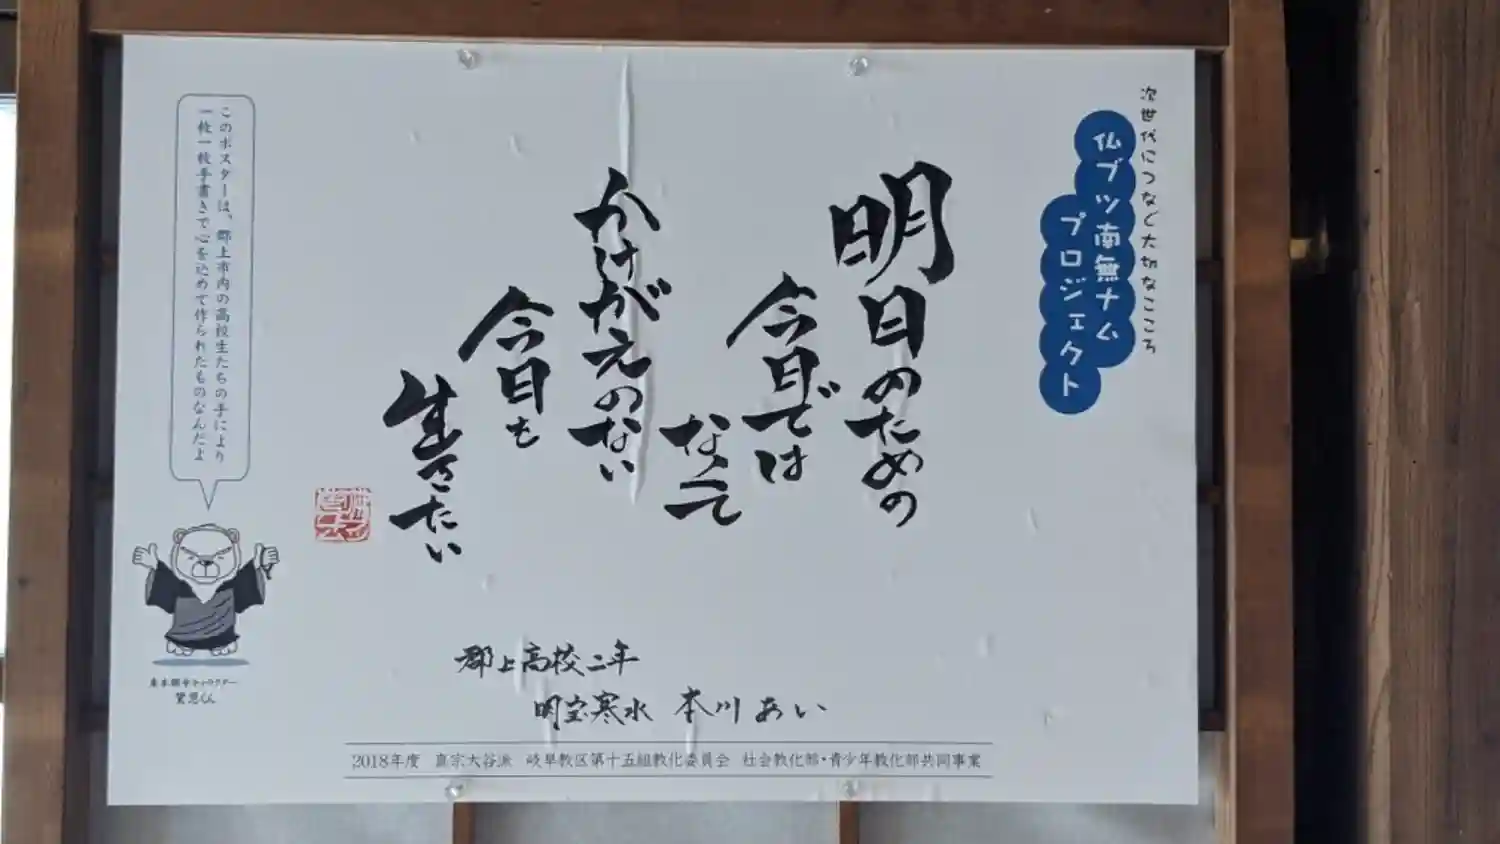 次世代につなぐ大切なこころ
仏ブツ南無ナム
プロジェクト
明日のための
今日では
なくて
かけがえのない
今日を
生きたい
郡上高校二年
明宝寒水 本川あい
このポスターは、郡上市内の高校生たちの手により
一枚一枚手書きで心を込めて作られたものなんだよ
東本願寺キャラクター
鸞恩くん
2018年度 真宗大谷派 岐阜教区第十五組教化委員会 社会教化部・青少年教化部共同事業